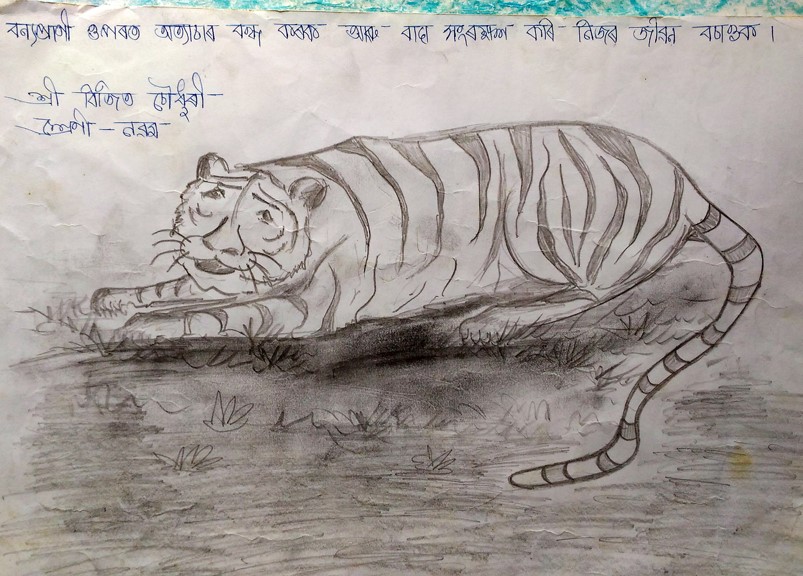 বন্যপ্ৰাণী ওপৰত অত্যাচাৰ বন্ধ কৰক আৰু বাঘ সংৰক্ষণ কৰি নিজৰ জীৱন বচাওক ।
শ্ৰী বিজিত চৌধুৰী
শ্ৰেণী - নৱম